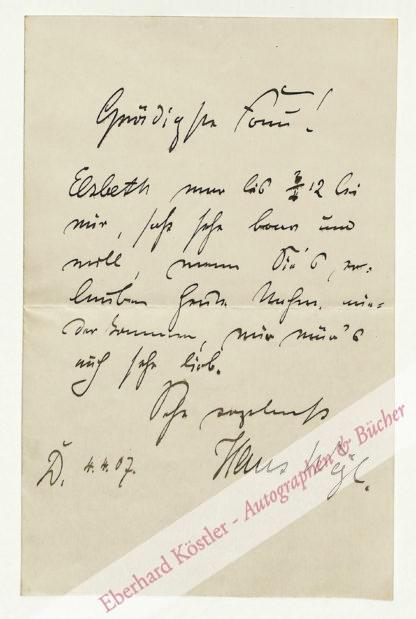 Gnädigste Frau!
Elsbeth war bis 3/4 12 bei
mir, saß sehr brav und
will, wenn Sie's er-
lauben heute Nachm. wie-
der kommen, mir wär's
auch sehr lieb.
Sehr ergebenst
D. 4.4.07. Hans
Eberhard Köstler - Autographen & Bücher